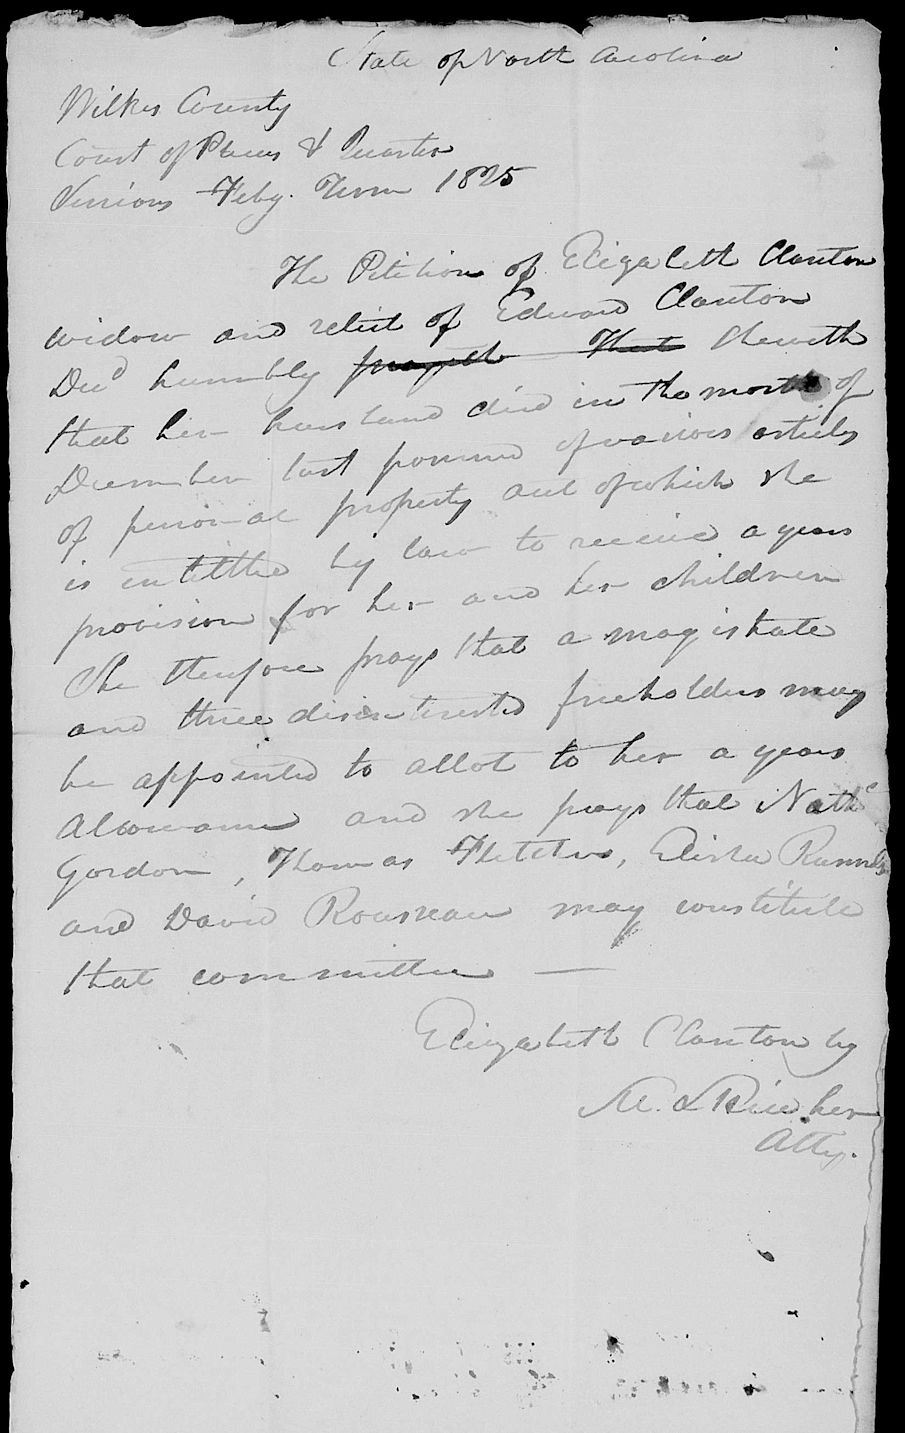 State of North Carolina
Wilkes County
Court of Pleas & Quarter
Sessions Feby. Term 1825
The Petition of Elizabeth Clanton
widow and relict of Edward Clanton
Decd humbly prayeth That sheweth
that her husband died in the month of
December last possessed of various articles
of personal property out of which she
is intitled by law to receive a years
provision for her and her children
She therefore prays that a magistrate
and three disinterested freeholders may
be appointed to allot to her a years
Allowance and she prays that Nathl
Gordon, Thomas Fletcher, Elisha Runnels
and David Rousseau may constitute
that committee —
Elizabeth Clanton by
her
Atty.